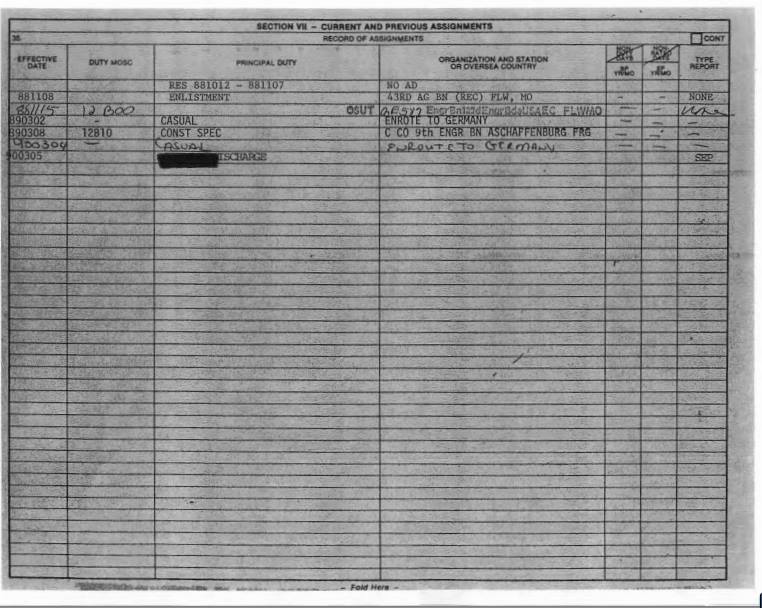 SECTION VII - CURRENT AND PREVIOUS ASSIGNMENTS
35. RECORD OF ASSIGNMENTS CONT
EFFECTIVE DATE DUTY MOSC PRINCIPAL DUTY ORGANIZATION AND STATION OR OVERSEA COUNTRY NON DUTY DAYS NON RATED DAYS TYPE REPORT
EP YR/MO EP YR/MO
RES 881012 - 881107 NO AD
881108 ENLISTMENT 43RD AG BN (REC) FLW, MO - - NONE
881115 12 B00 OSUT FLWMO - -
890302 - CASUAL ENROTE TO GERMANY - - -
890308 12B10 CONST SPEC C CO 9th ENGR BN ASCHAFFENBURG FRG - - -
900304 - CASUAL ENROUTE TO GERMANY - - -
900305 ISCHARGE SEP
- Fold Here -